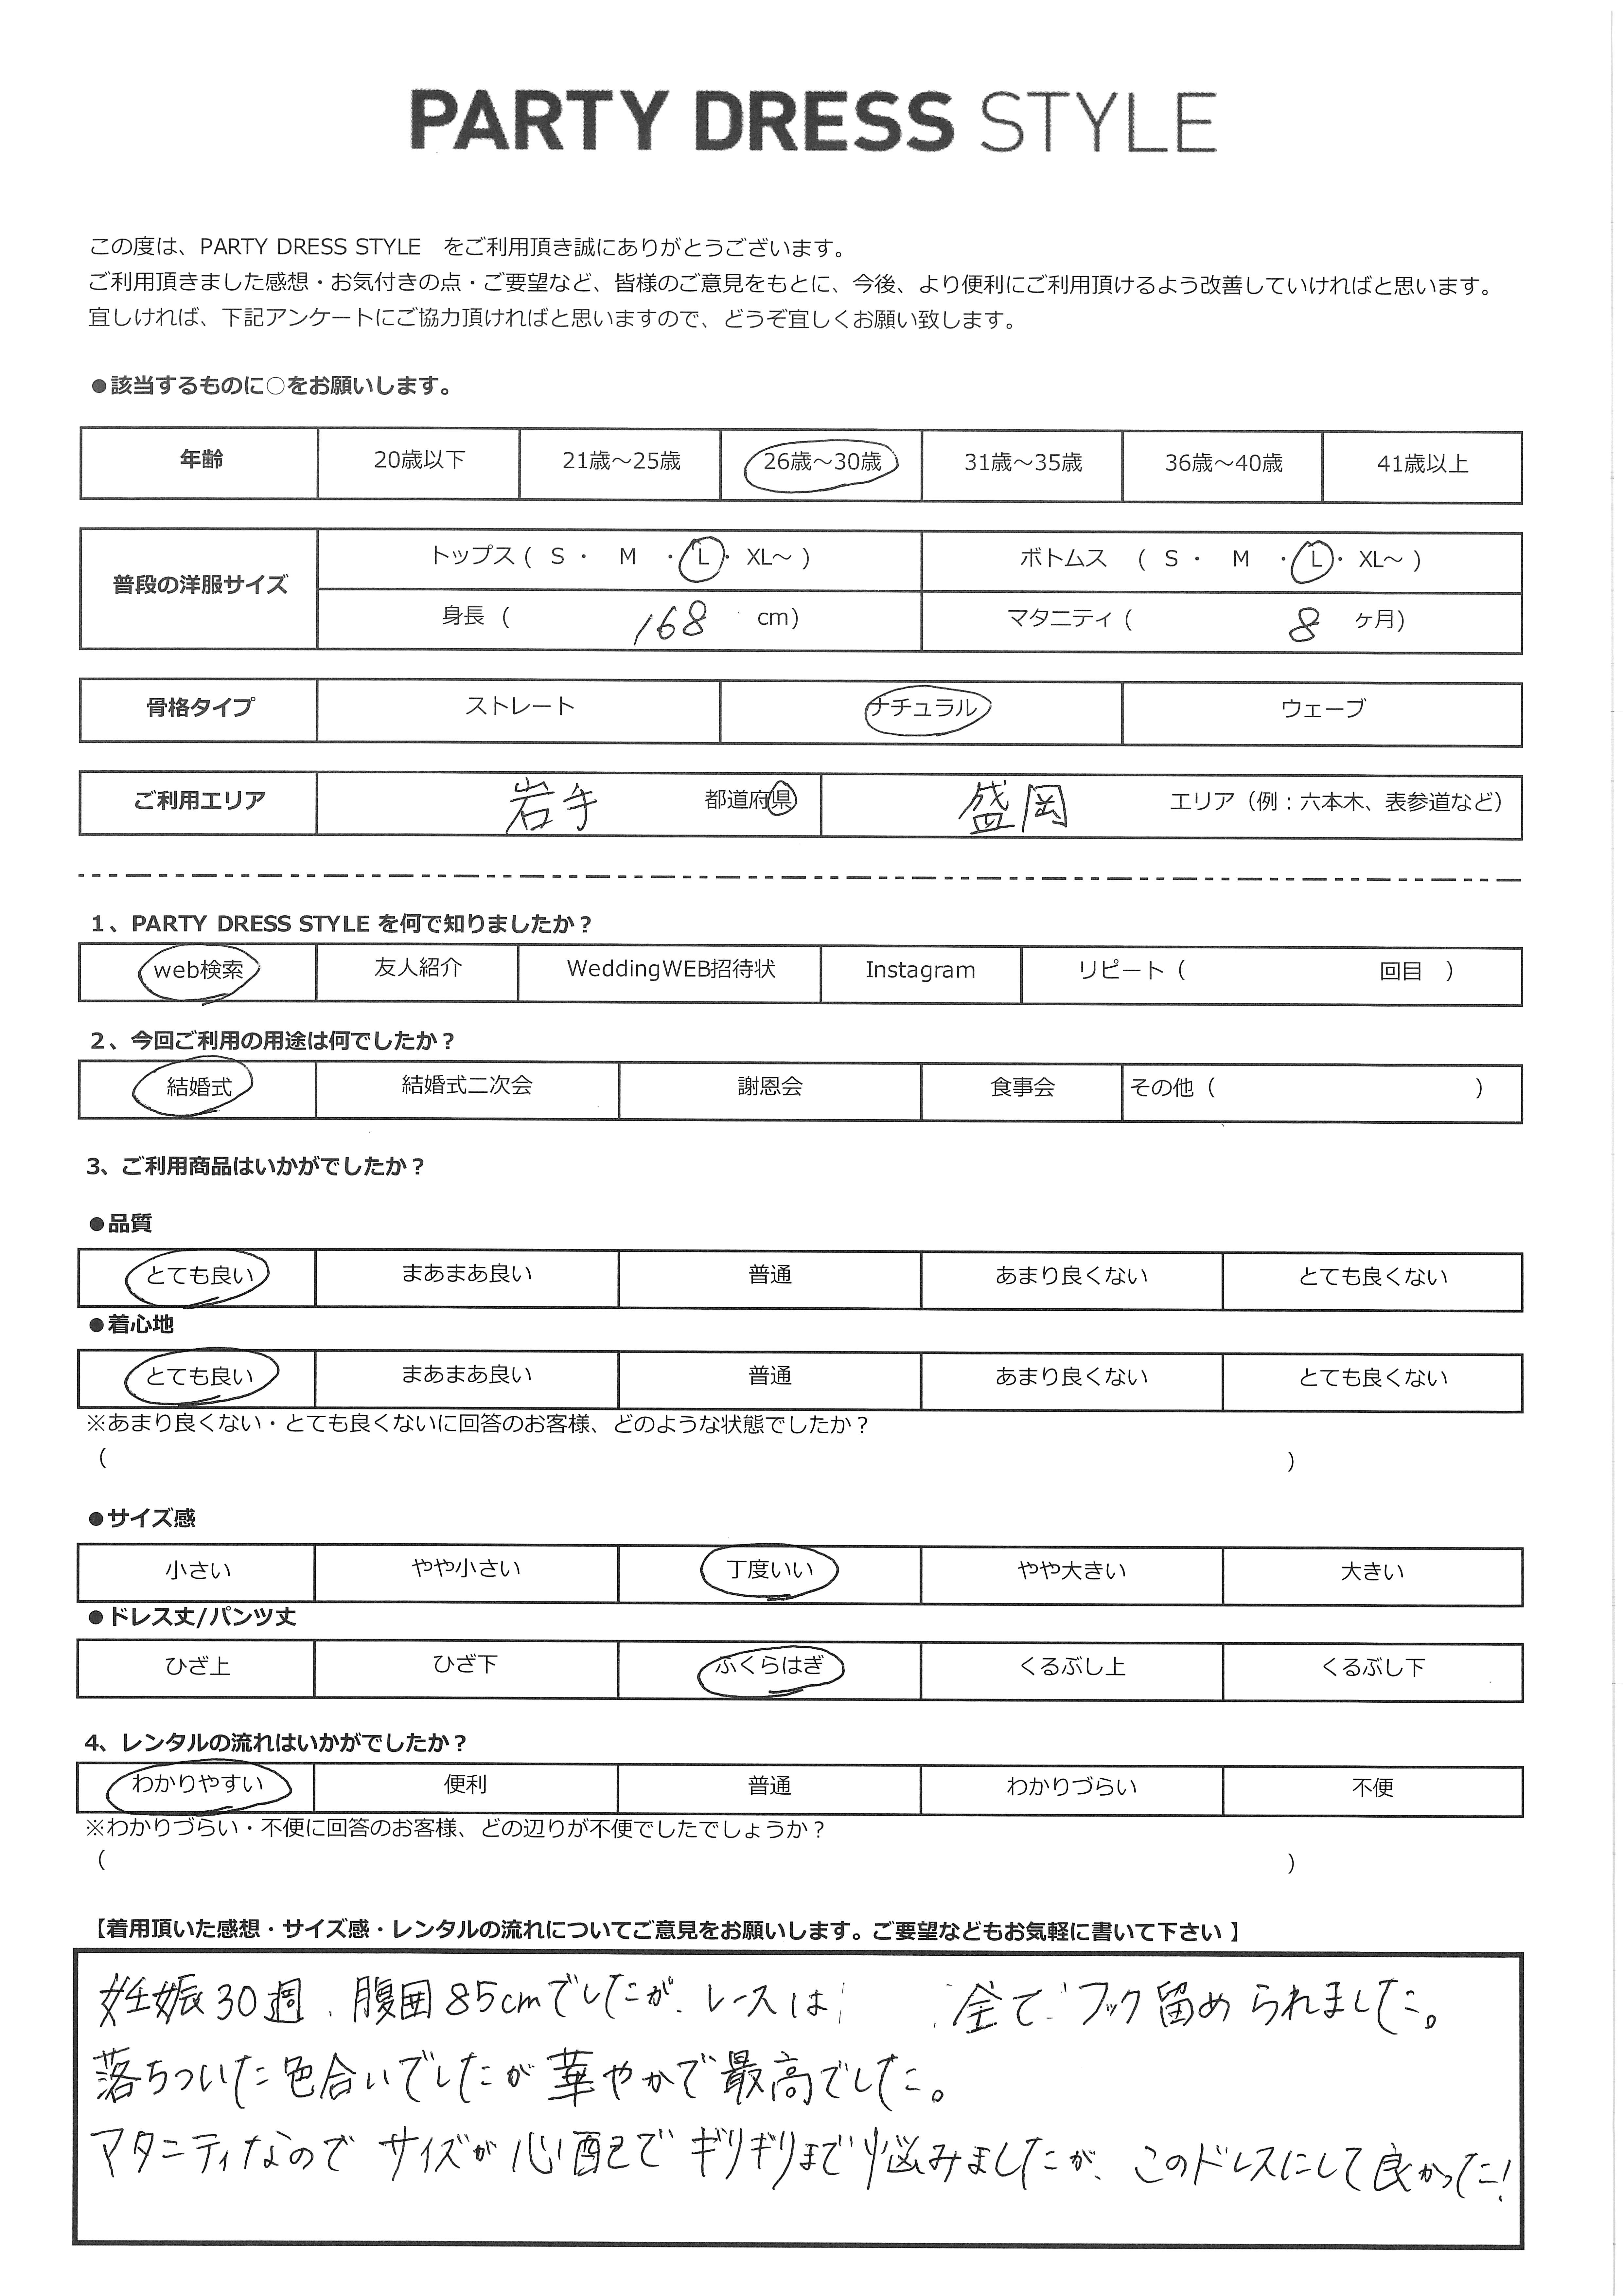 PARTY DRESS STYLE
この度は、PARTY DRESS STYLE をご利用頂き誠にありがとうございます。
ご利用頂きました感想・お気付きの点・ご要望など、皆様のご意見をもとに、今後、より便利にご利用頂けるよう改善していければと思います。
宜しければ、下記アンケートにご協力頂ければと思いますので、どうぞ宜しくお願い致します。
●該当するものに○をお願いします。
年齢 20歳以下 21歳～25歳 26歳～30歳 31歳～35歳 36歳～40歳 41歳以上
普段の洋服サイズ
トップス ( S ・ M ・ L ・ XL～ ) ボトムス ( S ・ M ・ L ・ XL～ )
身長 ( 168 cm) マタニティ ( 8 ヶ月)
骨格タイプ ストレート ナチュラル ウェーブ
ご利用エリア 岩手 都道府県 盛岡 エリア（例：六本木、表参道など）
1、PARTY DRESS STYLE を何で知りましたか？
web検索 友人紹介 WeddingWEB招待状 Instagram リピート（ 回目 ）
2、今回ご利用の用途は何でしたか？
結婚式 結婚式二次会 謝恩会 食事会 その他（ ）
3、ご利用商品はいかがでしたか？
●品質
とても良い まあまあ良い 普通 あまり良くない とても良くない
●着心地
とても良い まあまあ良い 普通 あまり良くない とても良くない
※あまり良くない・とても良くないに回答のお客様、どのような状態でしたか？
（ ）
●サイズ感
小さい やや小さい 丁度いい やや大きい 大きい
●ドレス丈/パンツ丈
ひざ上 ひざ下 ふくらはぎ くるぶし上 くるぶし下
4、レンタルの流れはいかがでしたか？
わかりやすい 便利 普通 わかりづらい 不便
※わかりづらい・不便に回答のお客様、どの辺りが不便でしたでしょうか？
（ ）
【着用頂いた感想・サイズ感・レンタルの流れについてご意見をお願いします。ご要望などもお気軽に書いて下さい 】
妊娠30週、腹囲85cmでしたが、レースは 全てフック留められました。
落ちついた色合いでしたが華やかで最高でした。
マタニティなのでサイズが心配でギリギリまで悩みましたが、このドレスにして良かった！